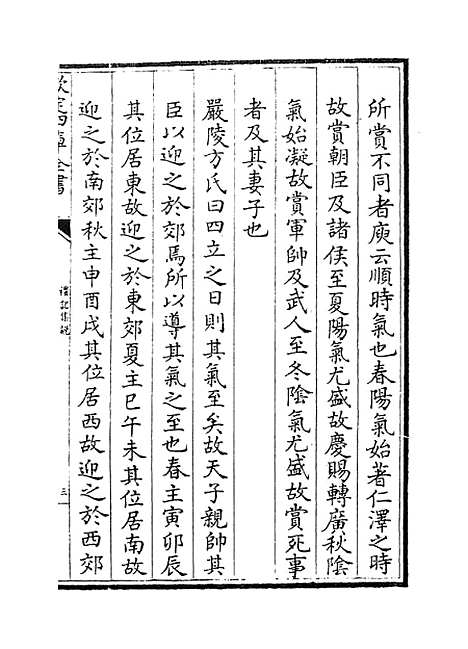 所賞不同者庾云順時氣也春陽氣始著仁澤之時
故賞朝臣及諸侯至夏陽氣尤盛故慶賜轉廣秋陰
氣始凝故賞軍帥及武人至冬陰氣尤盛故賞死事
者及其妻子也
嚴陵方氏曰四立之日則其氣至矣故天子親帥其
臣以迎之於郊焉所以導其氣之至也春主寅卯辰
其位居東故迎之於東郊夏主巳午未其位居南故
迎之於南郊秋主申酉戌其位居西故迎之於西郊
欽定四庫全書
禮記集說
三